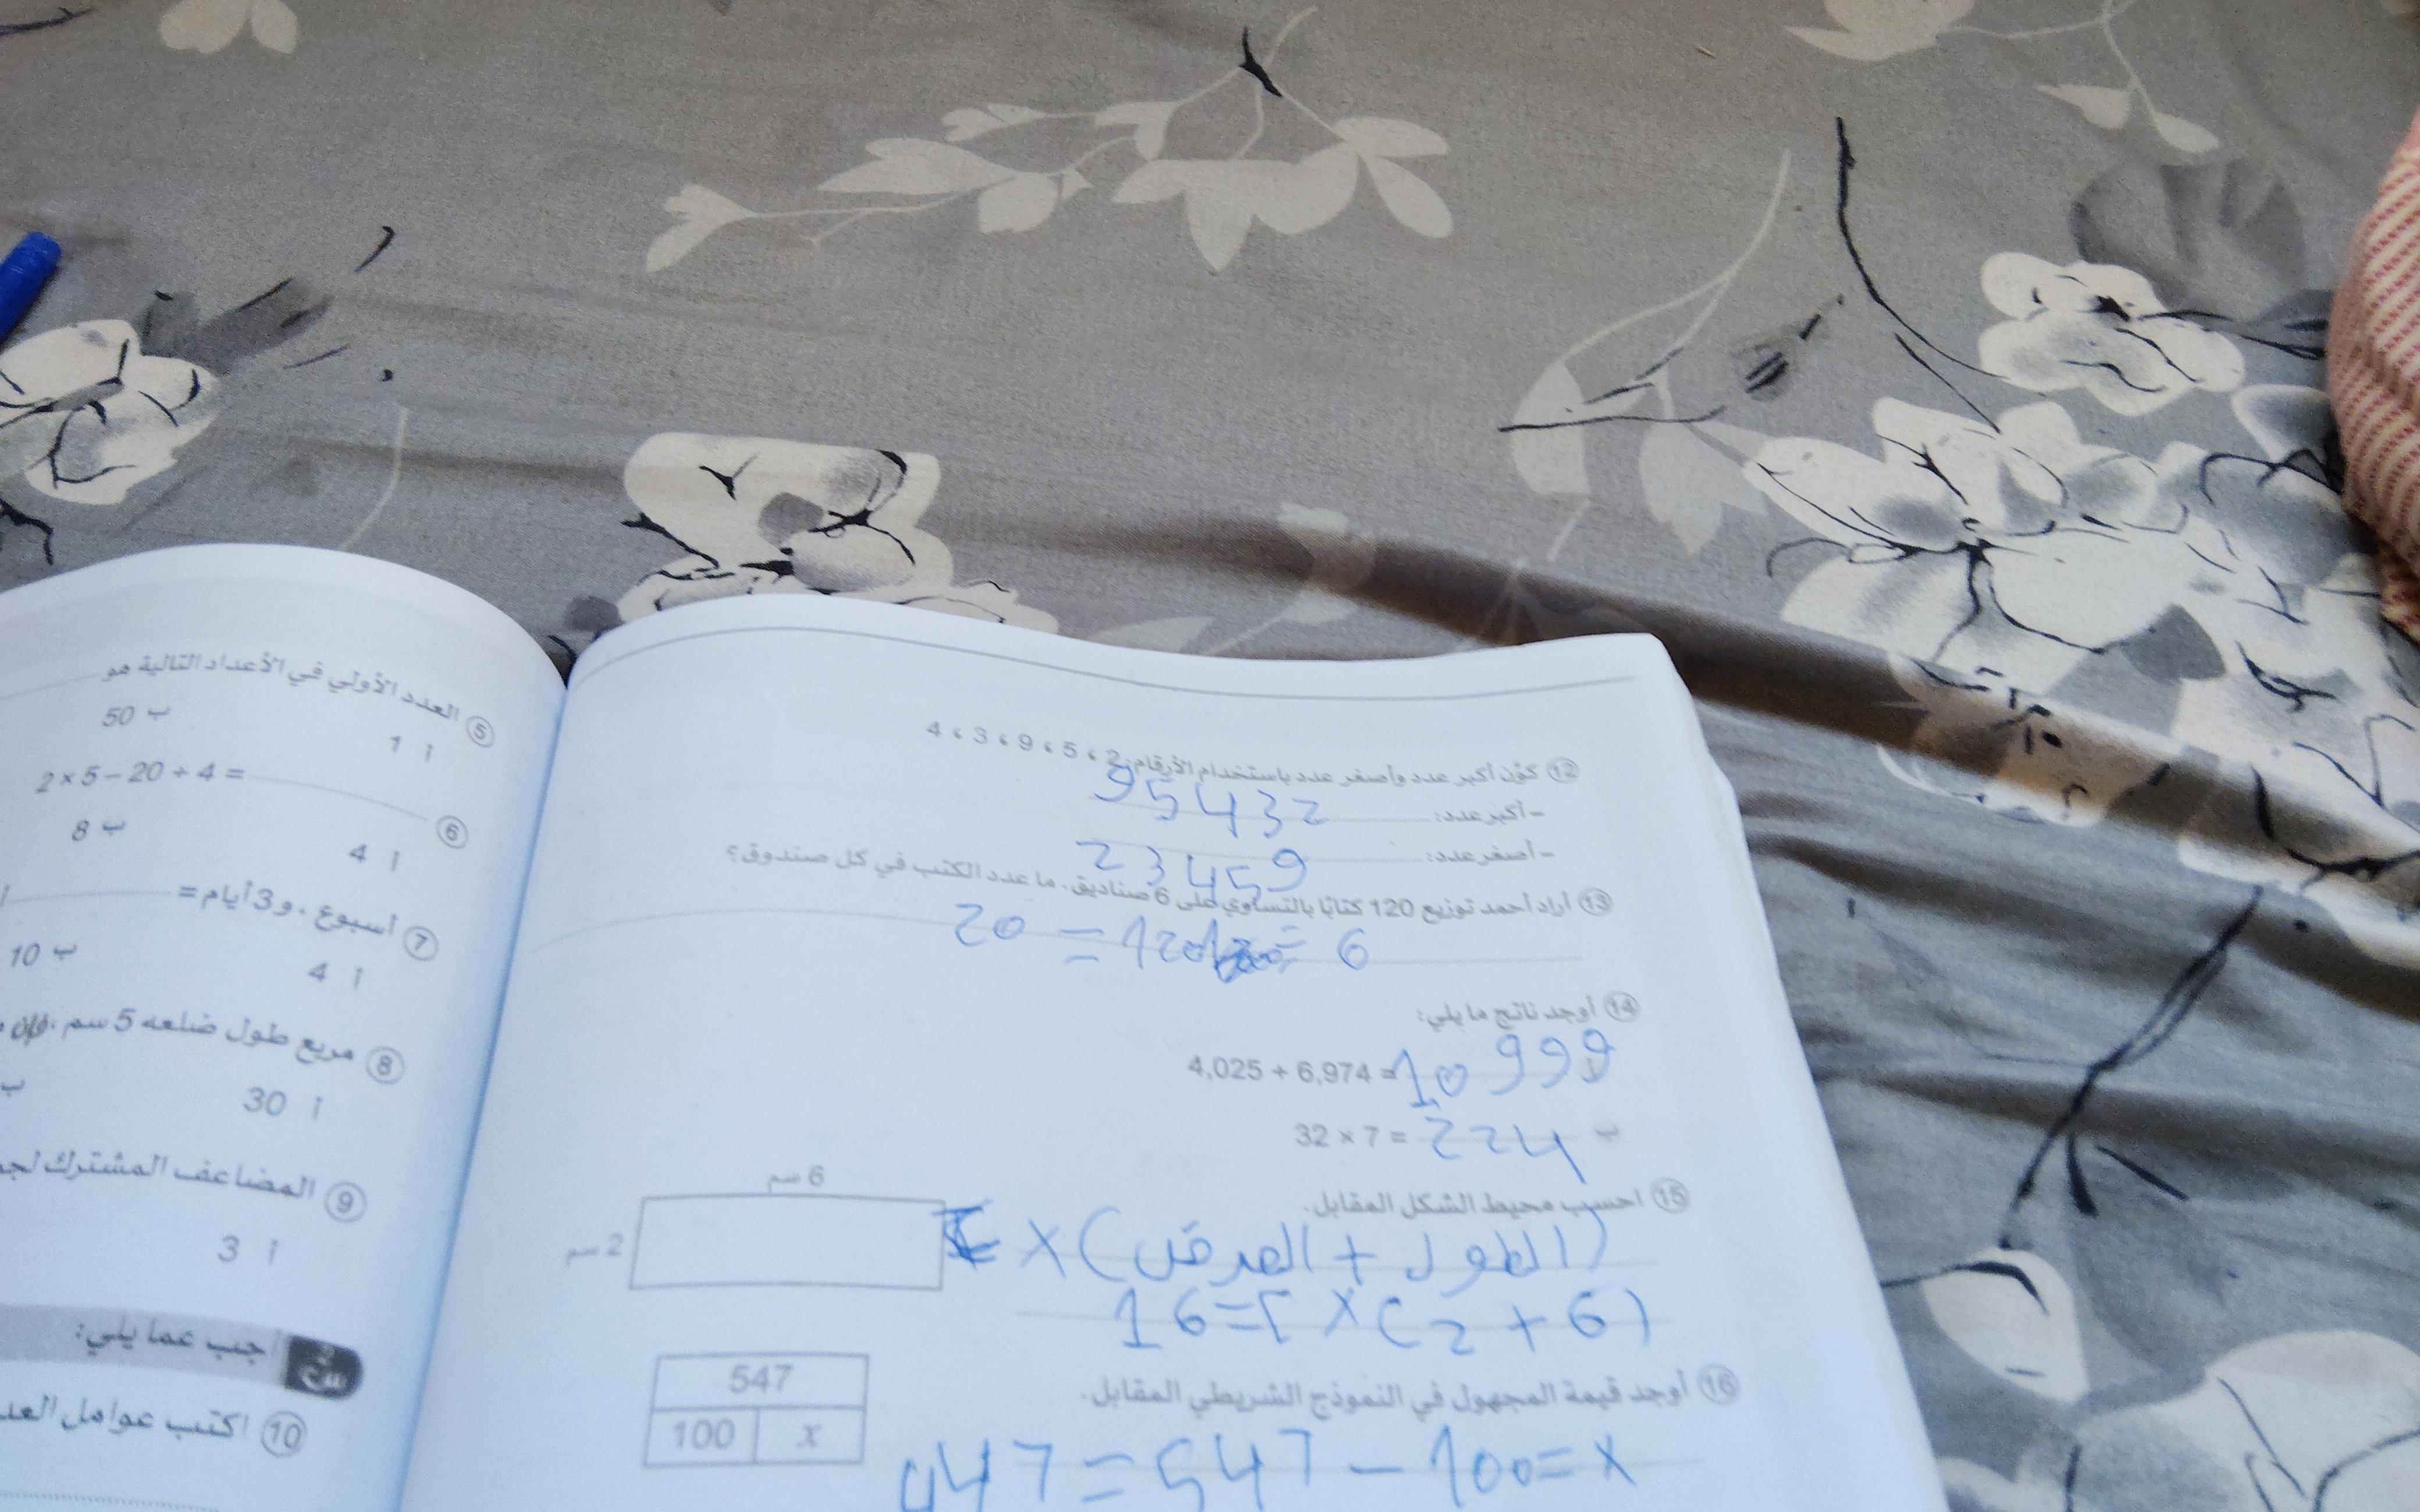 ⑫ كوِّن أكبر عدد وأصغر عدد باستخدام الأرقام: 2 ، 5 ، 9 ، 3 ، 4
- أكبر عدد: 95432
- أصغر عدد: 23459
⑬ أراد أحمد توزيع 120 كتابًا بالتساوي على 6 صناديق. ما عدد الكتب في كل صندوق؟
20 = 120 ÷ 6
⑭ أوجد ناتج ما يلي:
4,025 + 6,974 = 10999
ب 32 × 7 = 224
⑮ احسب محيط الشكل المقابل.
6 سم
2 سم
(الطول + العرض) ×
16=2 X (2 + 6)
⑯ أوجد قيمة المجهول في النموذج الشريطي المقابل.
547
100 x
447 = 547 - 100 = x
⑤ العدد الأولي في الأعداد التالية هو
أ 1 ب 50
⑥ 2 × 5 – 20 ÷ 4 =
أ 4 ب 8
⑦ أسبوع ، و 3 أيام =
أ 4 ب 10
⑧ مربع طول ضلعه 5 سم ، فإن
أ 30 ب
⑨ المضاعف المشترك
أ 3
جب عما يلي:
⑩ اكتب عوامل